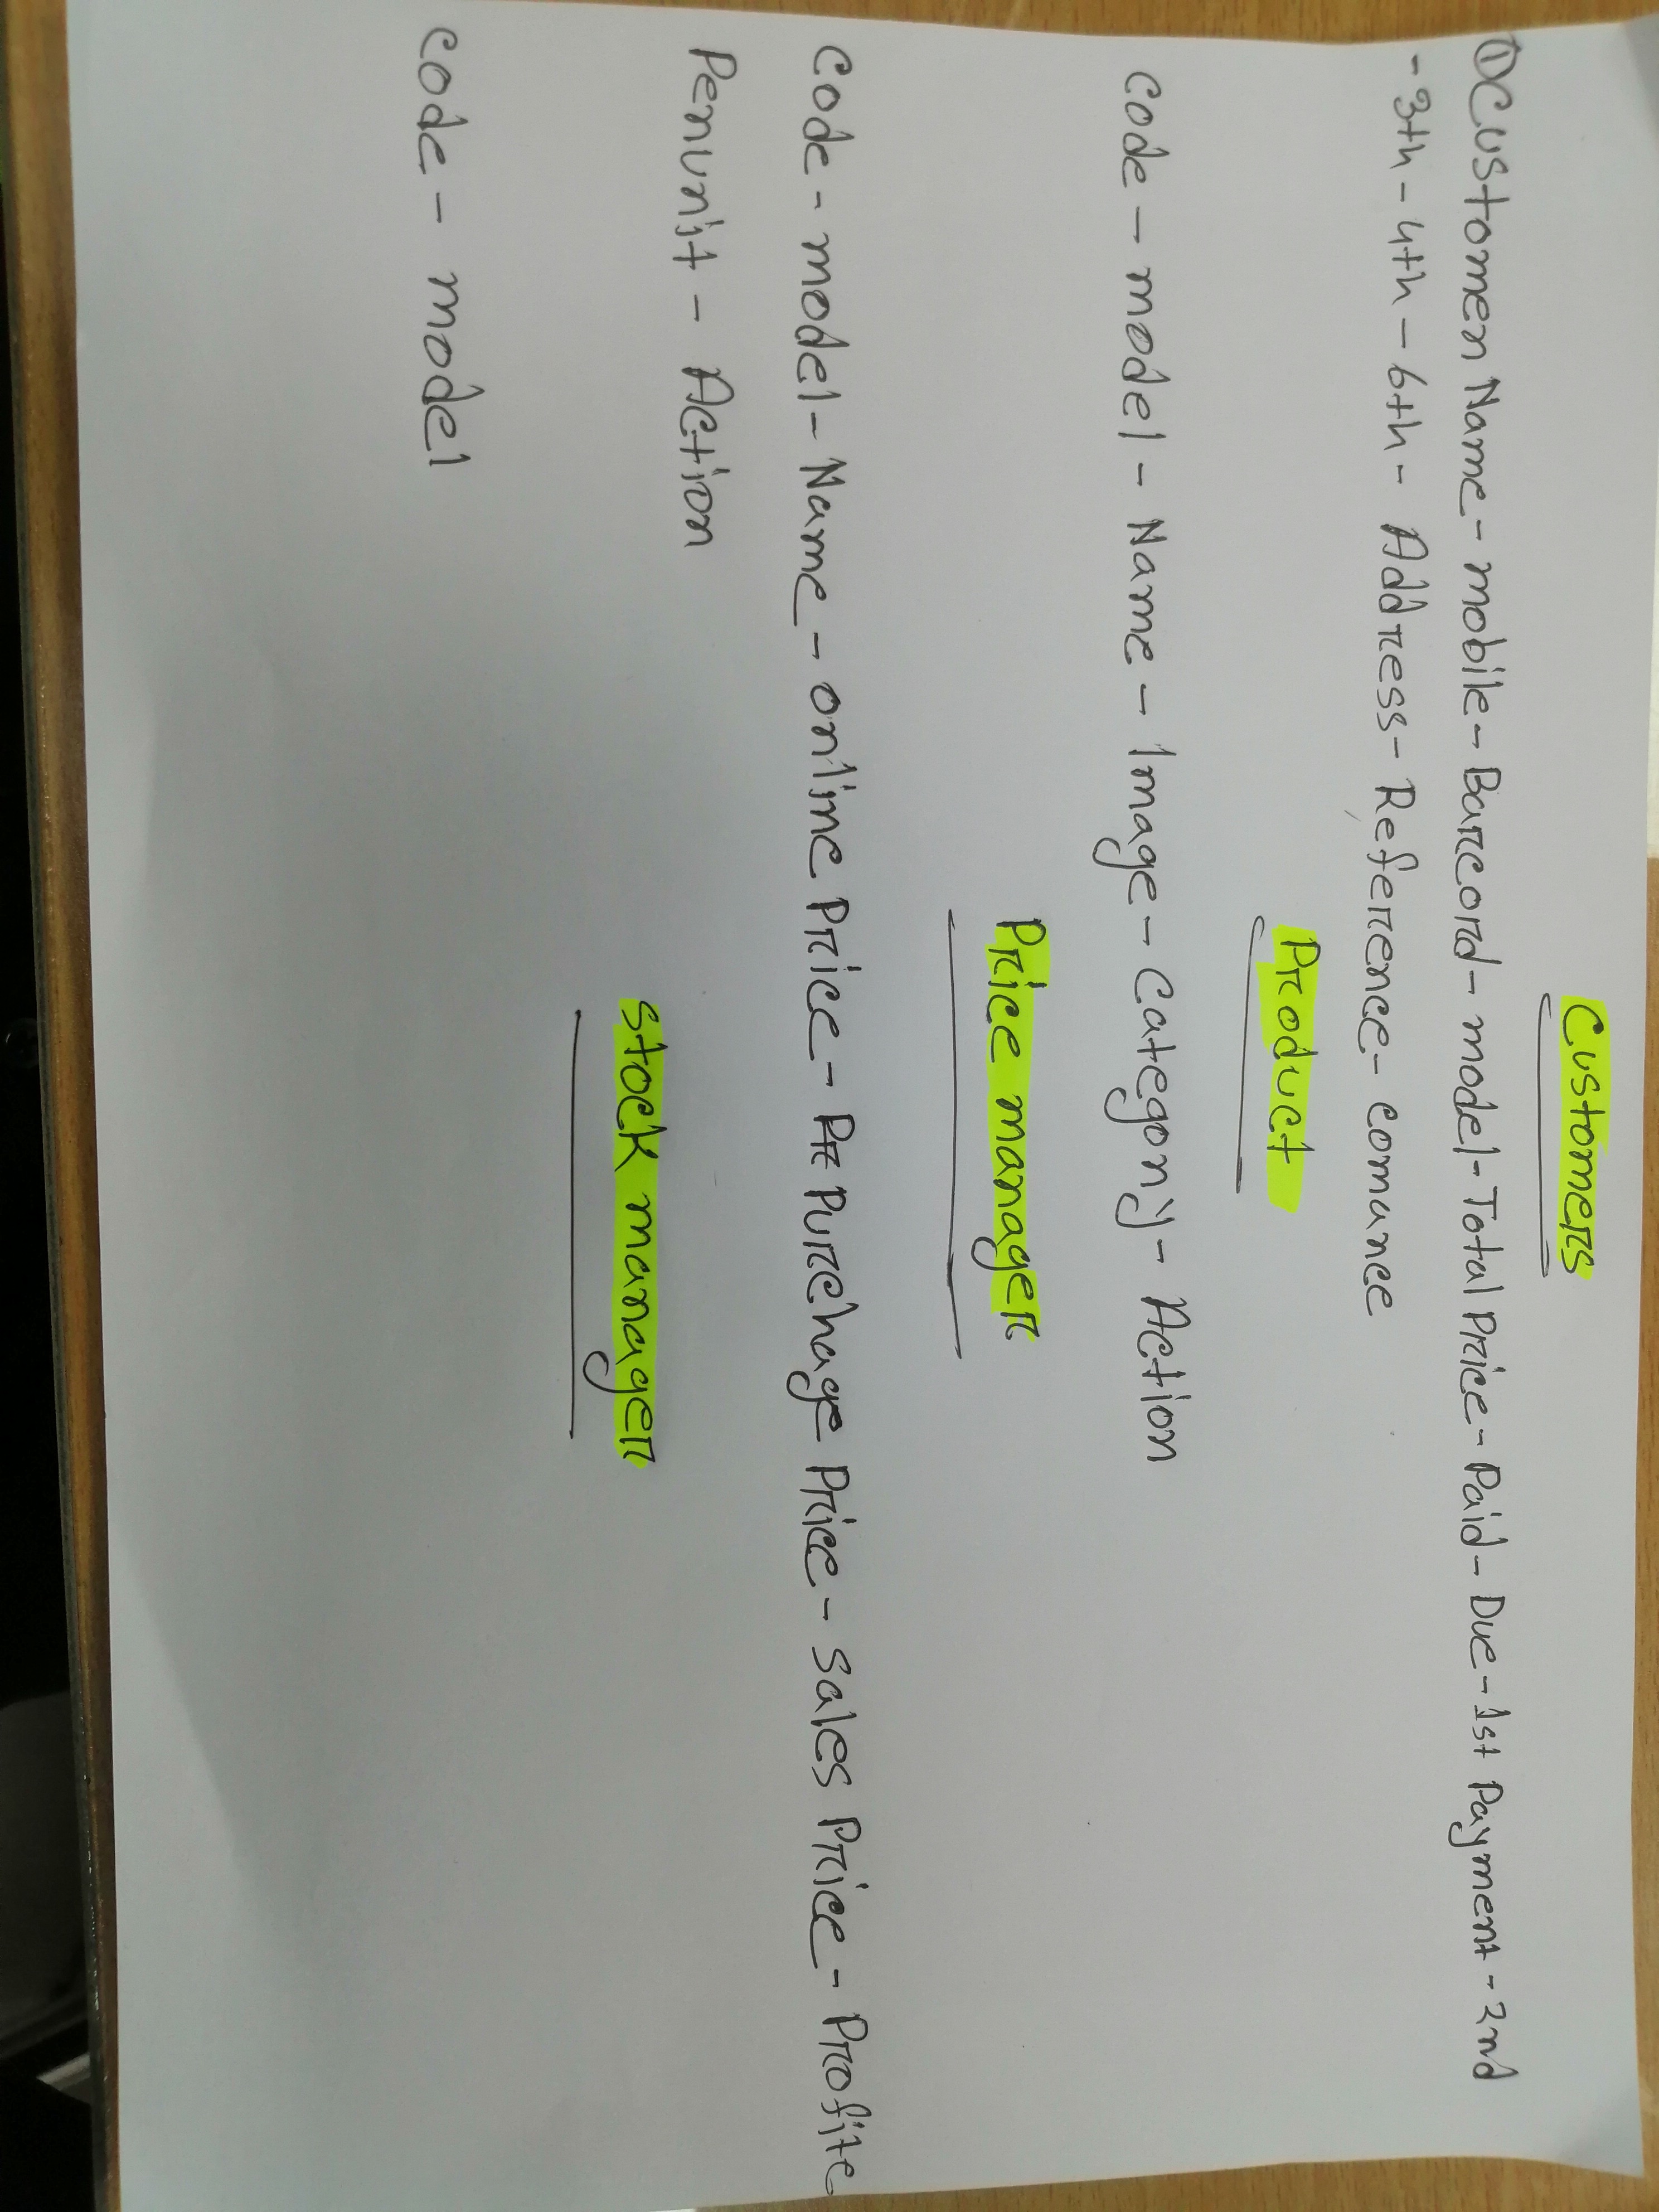 Customers
① Customer Name - mobile - Barcord - model - Total Price - Paid - Due - 1st Payment - 2nd
- 3th - 4th - 6th - Address - Reference - comance
Product
code - model - Name - Image - Category - Action
Price manager
Code - model - Name - online Price - Pr Purchage Price - sales Price - Profite
Perunit - Action
stock manager
code - model